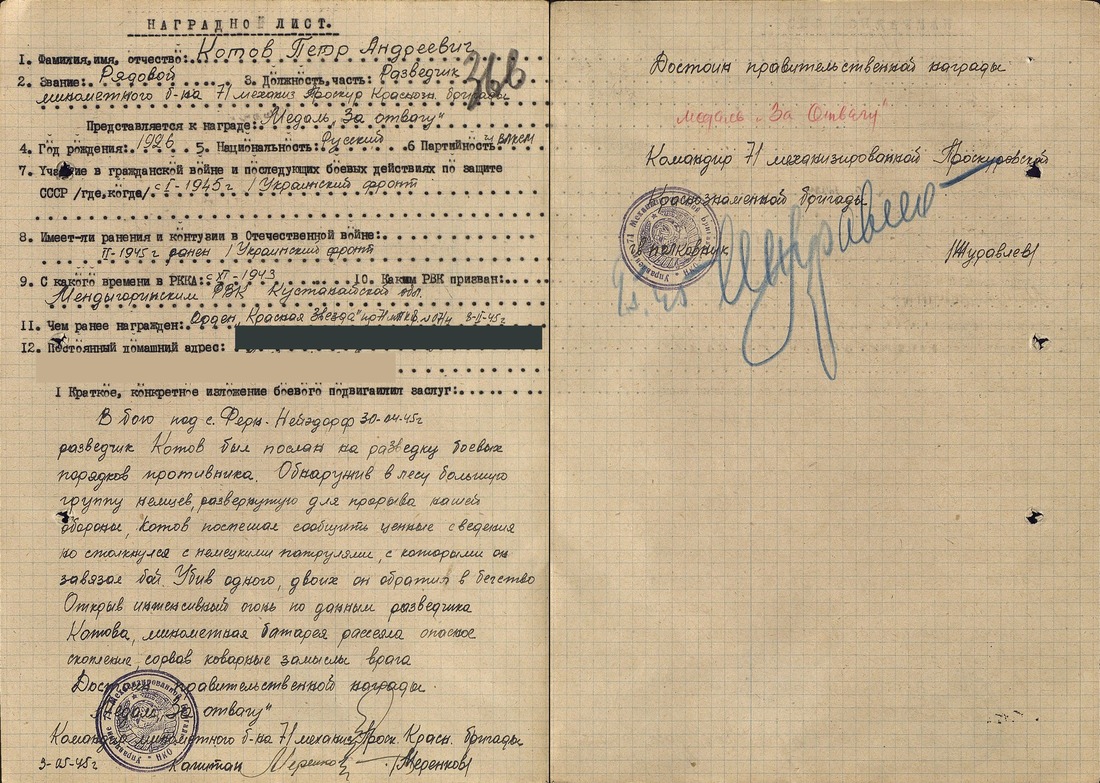 НАГРАДНОЙ ЛИСТ.
1. Фамилия, имя, отчество: Котов Петр Андреевич
366
2. Звание: Рядовой 3. Должность, часть: Разведчик
минометного б-на 71 механиз Проскур Краснозн. бригады
Представляется к награде: Медаль „За отвагу"
4. Год рождения: 1926 5. Национальность: Русский 6 Партийность: ВЛКСМ
7. Участие в гражданской войне и последующих боевых действиях по защите
СССР /где, когда/ с I-1945 г 1 Украинский фронт
8. Имеет-ли ранения и контузии в Отечественной войне:
II-1945 г ранен 1 Украинский фронт
9. С какого времени в РККА: с XI-1943 10. Каким РВК призван:
Мендыгаринским РВК Кустанайской обл.
11. Чем ранее награжден: Орден „Красная Звезда" 8-II-45г
12. Постоянный домашний адрес:
I Краткое, конкретное изложение боевого подвига или заслуг:
В бою под с. Ферн-Нейэдорф 30-04-45г
разведчик Котов был послан на разведку боевых
порядков противника. Обнаружив в лесу большую
группу немцев, развернутую для прорыва нашей
обороны, Котов поспешал сообщить ценные сведения
но столкнулся с немецкими патрулями, с которыми он
завязал бой. Убив одного, двоих он обратил в бегство
Открыв интенсивный огонь по данным разведчика
Котова, минометная батарея рассеяла опасное
скопление, сорвав коварные замыслы врага
Достоин правительственной награды
медаль „За отвагу"
Командир минометного б-на 71 механиз Проск. Красн. бригады
3-05-45г Капитан /Меренков/
Достоин правительственной награды
медаль „За Отвагу"
Командир 71 механизированной Проскуровской
Краснознаменной бригады
гв полковник /Журавлев/